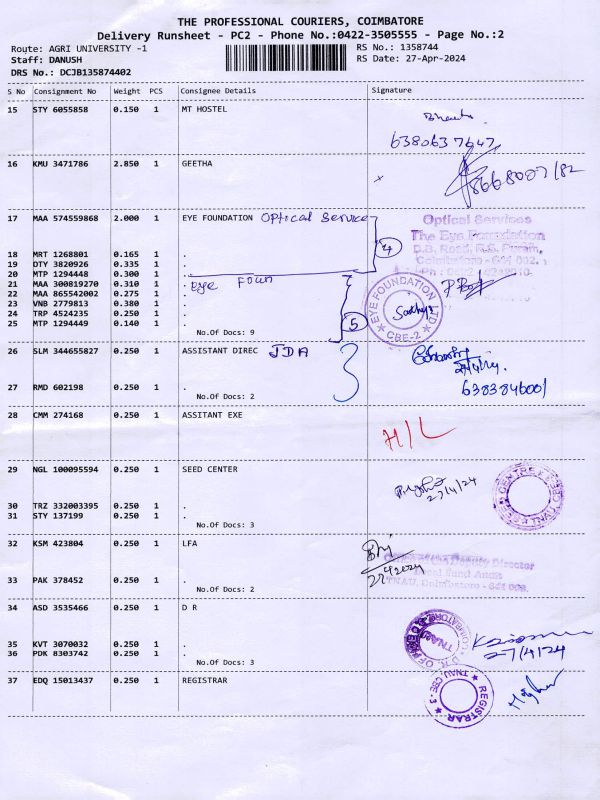 THE PROFESSIONAL COURIERS, COIMBATORE
Delivery Runsheet - PC2 - Phone No.:0422-3505555 - Page No.:2
Route: AGRI UNIVERSITY -1
RS No.: 1358744
Staff: DANUSH
RS Date: 27-Apr-2024
DRS No.: DCJB135874402
S No Consignment No Weight PCS Consignee Details Signature
15 STY 6055858 0.150 1 MT HOSTEL
6380637647
16 KMU 3471786 2.850 1 GEETHA
17 MAA 574559868 2.000 1 EYE FOUNDATION Optical Service
Optical Services
The Eye Foundation
D.B. Road, R.S. Puram,
Coimbatore - 641 002.
4
18 MRT 1268801 0.165 1 .
19 DTY 3820926 0.335 1 .
20 MTP 1294448 0.300 1 .
21 MAA 300819270 0.310 1 . Eye Foun
22 MAA 865542002 0.275 1 .
23 VNB 2779813 0.380 1 .
24 TRP 4524235 0.250 1 .
25 MTP 1294449 0.140 1 .
5
EYE FOUNDATION LTD
CBE-2
No.Of Docs: 9
26 SLM 344655827 0.250 1 ASSISTANT DIREC JDA
27 RMD 602198 0.250 1 .
No.Of Docs: 2
28 CMM 274168 0.250 1 ASSITANT EXE
H/L
29 NGL 100095594 0.250 1 SEED CENTER
27/4/24
30 TRZ 332003395 0.250 1 .
31 STY 137199 0.250 1 .
No.Of Docs: 3
32 KSM 423804 0.250 1 LFA
27/4/2024
Office of the Deputy Director
Local Fund Audit
TNAU, Coimbatore - 641 003.
33 PAK 378452 0.250 1 .
No.Of Docs: 2
34 ASD 3535466 0.250 1 D R
27/4/24
35 KVT 7070032 0.250 1 .
36 PDK 8303742 0.250 1 .
No.Of Docs: 3
37 EDQ 15013437 0.250 1 REGISTRAR
REGISTRAR
TNAU, CBE-3